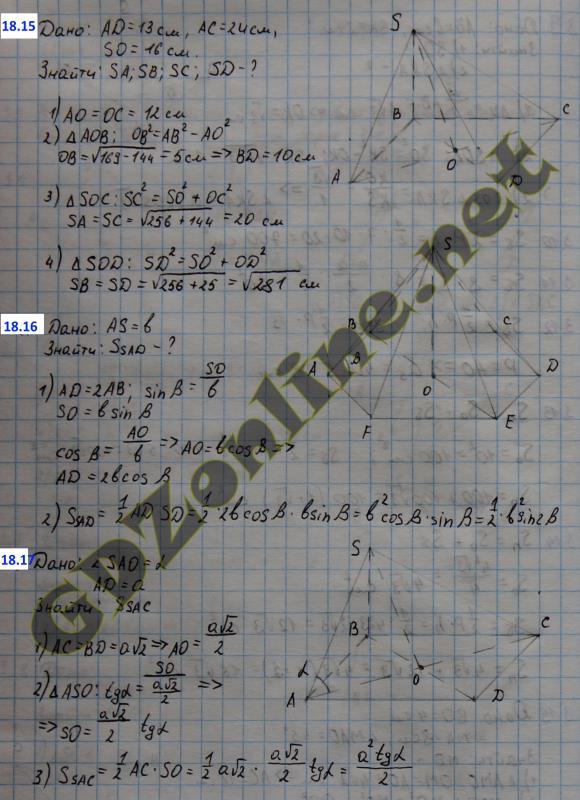 18.15 Дано: AD=13 см, AC=24 см,
SO=16 см.
Знайти: SA; SB; SC; SD-?
1) AO=OC=12 см
2) ΔAOB; OB²=AB²-AO²
OB=√169-144=5см⇒BD=10см
3) ΔSOC: SC²=SO²+OC²
SA=SC=√256+144=20 см
4) ΔSOD: SD²=SO²+OD²
SB=SD=√256+25=√281 см
S
B
C
A
O
D
18.16 Дано: AS=b
Знайти: S_SAD-?
1) AD=2AB; sinβ=SO/b
SO=b sinβ
cosβ=AO/b⇒AO=b cosβ⇒
AD=2b cosβ
2) S_SAD=1/2 AD·SD=1/2·2b cosβ·b sinβ=b²cosβ·sinβ=1/2·b²sin2β
S
B
C
A
β
O
D
F
E
18.17 Дано: ∠SAO=α
AD=a
Знайти: S_SAC
1) AC=BD=a√2⇒AO=a√2/2
2) ΔASO: tgα=SO/(a√2/2) ⇒
⇒SO=a√2/2 tgα
3) S_SAC=1/2 AC·SO=1/2 a√2·a√2/2 tgα=a²tgα/2
S
B
C
α
O
A
D
GDZonline.net